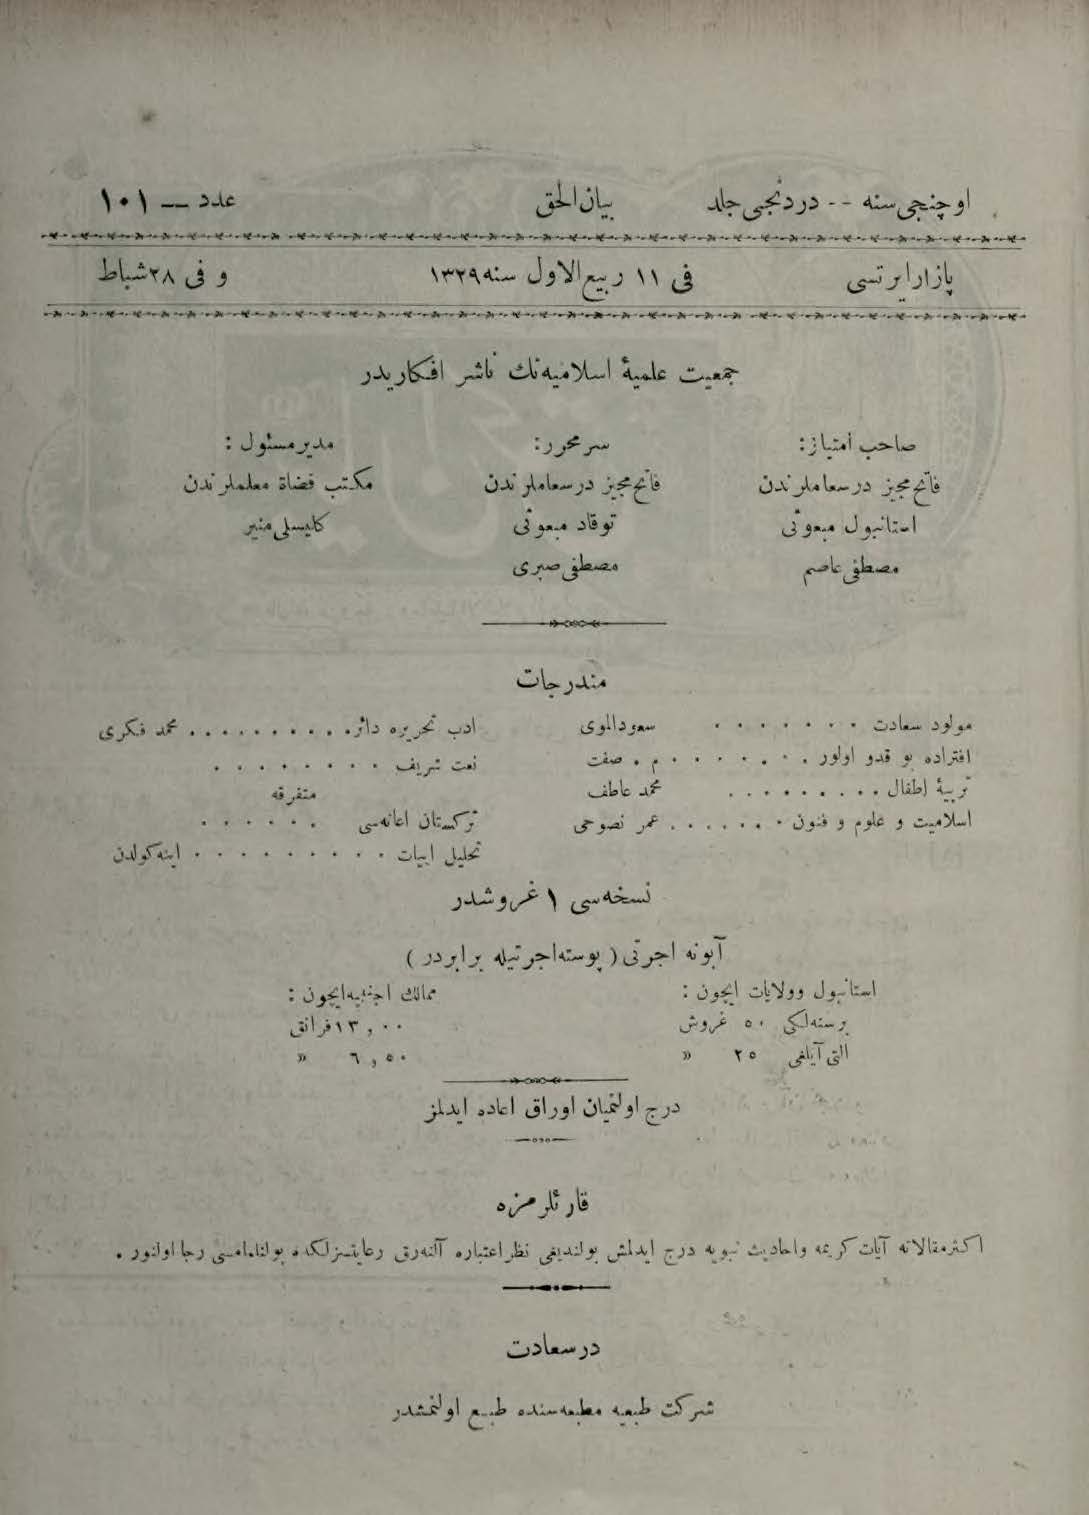 اوچنجی سنه -- دردنجی جلد بیان الحق عدد — ۱۰۱
پازار ایرتسی فی ۱۱ ربیع الاول سنه ۱۳۲۹ و فی ۲۸ شباط
جمعیت علمیۀ اسلامیه نك ناشر افکاریدر
صاحب امتیاز:
فاتح مجیز درسعاملرندن
استانبول مبعوثی
مصطفی عاصم
سر محرر:
فاتح مجیز درسعاملرندن
توقاد مبعوثی
مصطفی صبری
مدیر مسئول :
مکتب قضاة معلملرندن
کلیسلی منیر
مندرجات
مولود سعادت . . . . . . . سعود المولوی
افتراده بو قدو اولور . . . . . . . . م . صفت
تربیۀ اطفال . . . . . . . . . محمد عاطف
اسلامیت و علوم و فنون . . . . . . . عمر نصوحی
ادب تحریره دائر . . . . . . . . . . محمد فکری
نعت شریف . . . . . . . .
متفرقه
ترکستان اعانه سی . . . . . .
تحلیل ابیات . . . . . . . . . اینه کولدن
نسخه سی ۱ غروشدر
آبونه اجرتی ( پوسته اجرتیله برابردر )
استانبول وولایات ایچون :
برسنه لکی ۵۰ غروش
التی آیلغی ۲۵ »
ممالك اجنبیه ایچون :
۱۳,۰۰ فرانق
۶,۵۰ »
درج اولنمیان اوراق اعاده ایدلمز
قارئلرمزه
اکثر مقالاته آیات کریمه واحادیث نبویه درج ایدلمش بولندیغی نظر اعتباره آلنه رق رعایتسزلکده بولنامامسی رجا اولنور .
درسعادت
شرکت طبعیه مطبعه سنده طبع اولنمشدر